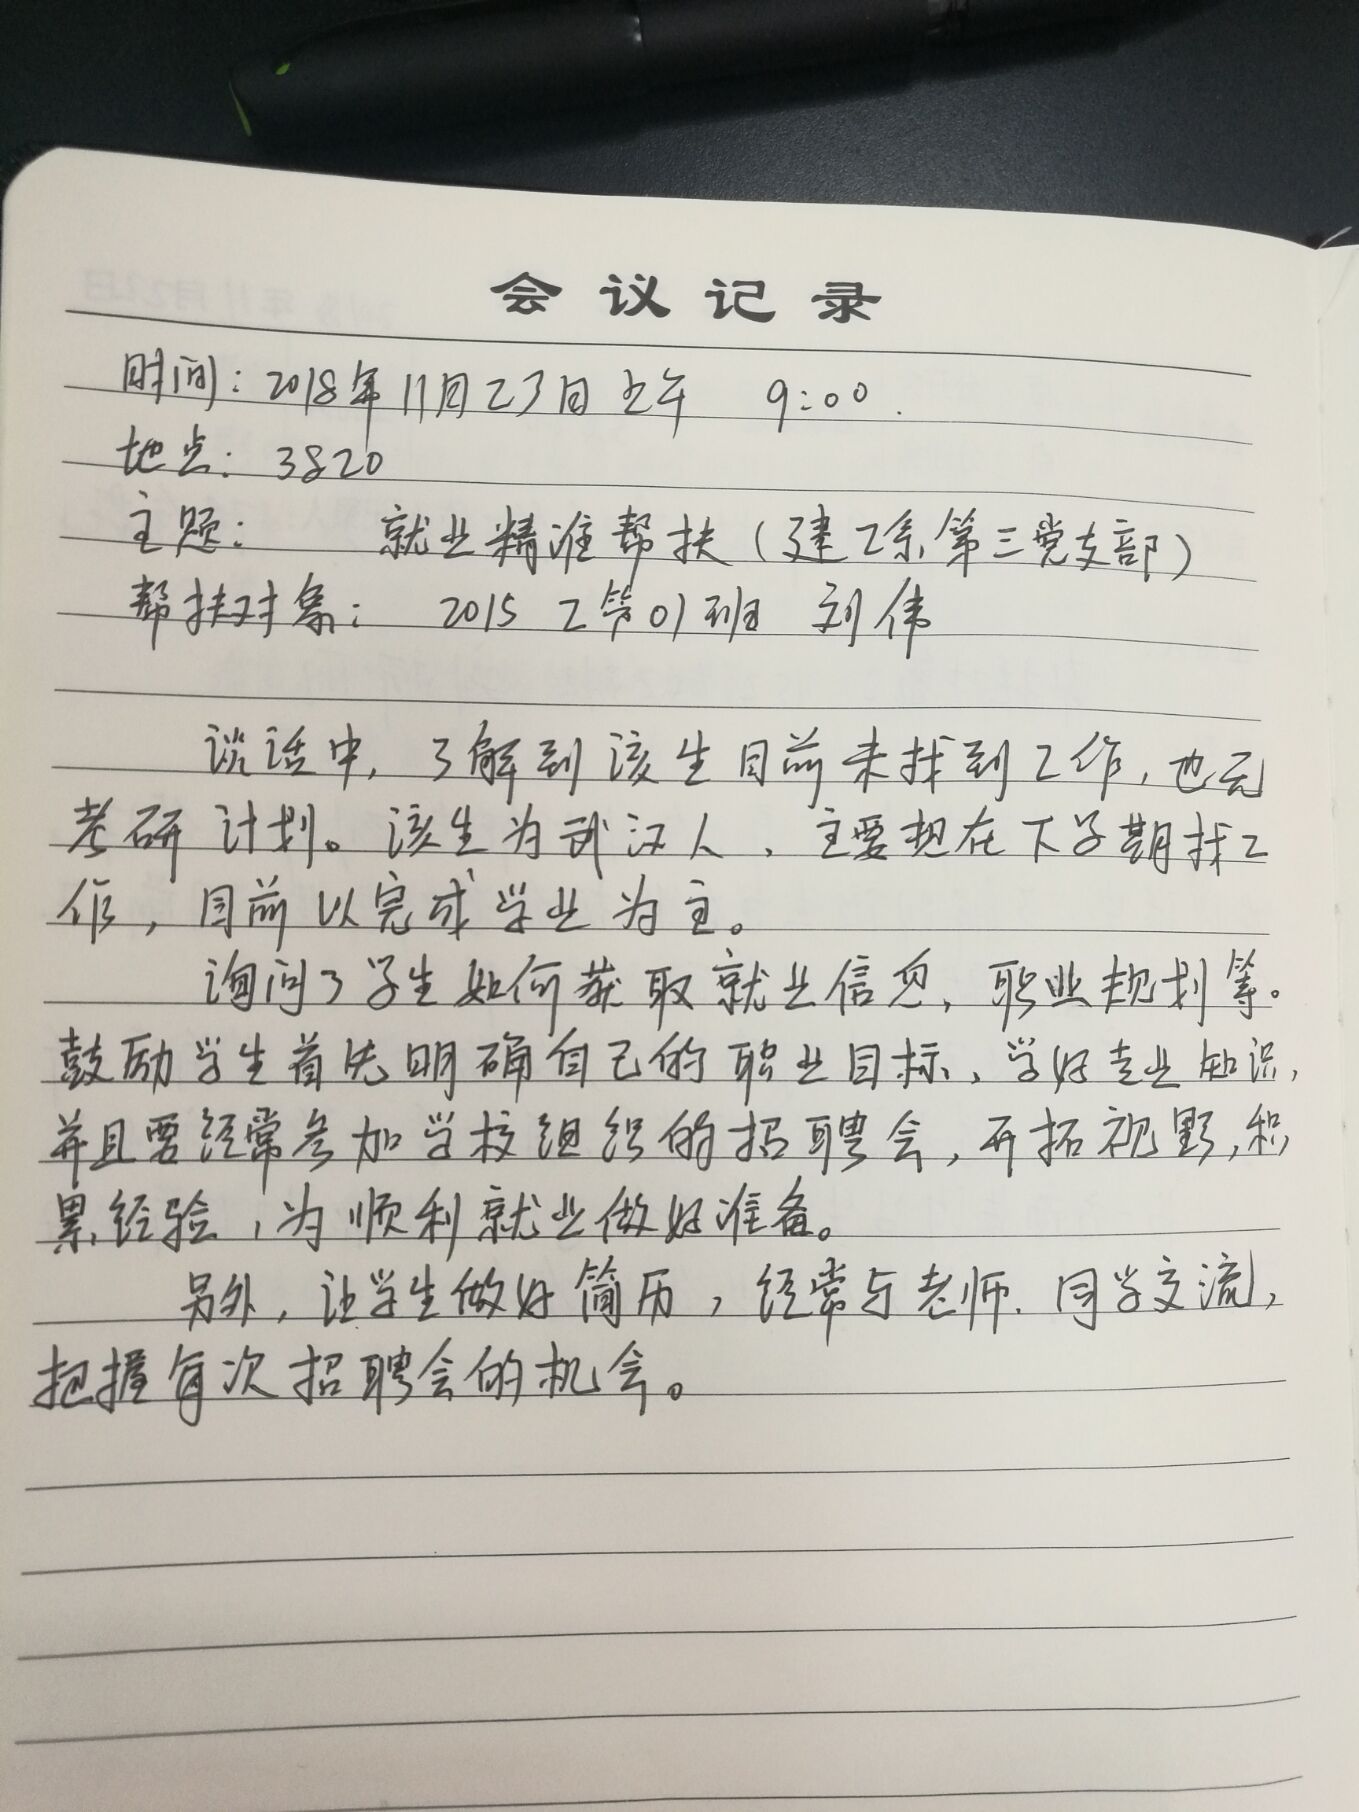 会议记录
时间：2018年11月23日上午 9:00.
地点：3820
主题： 就业精准帮扶（建工系第三党支部）
帮扶对象： 2015 工管01班 刘伟
谈话中，了解到该生目前未找到工作，也无
考研计划。该生为武汉人，主要想在下学期找工
作，目前以完成学业为主。
询问了学生如何获取就业信息，职业规划等。
鼓励学生首先明确自己的职业目标、学好专业知识，
并且要经常参加学校组织的招聘会，开拓视野，积
累经验，为顺利就业做好准备。
另外，让学生做好简历，经常与老师、同学交流，
把握每次招聘会的机会。